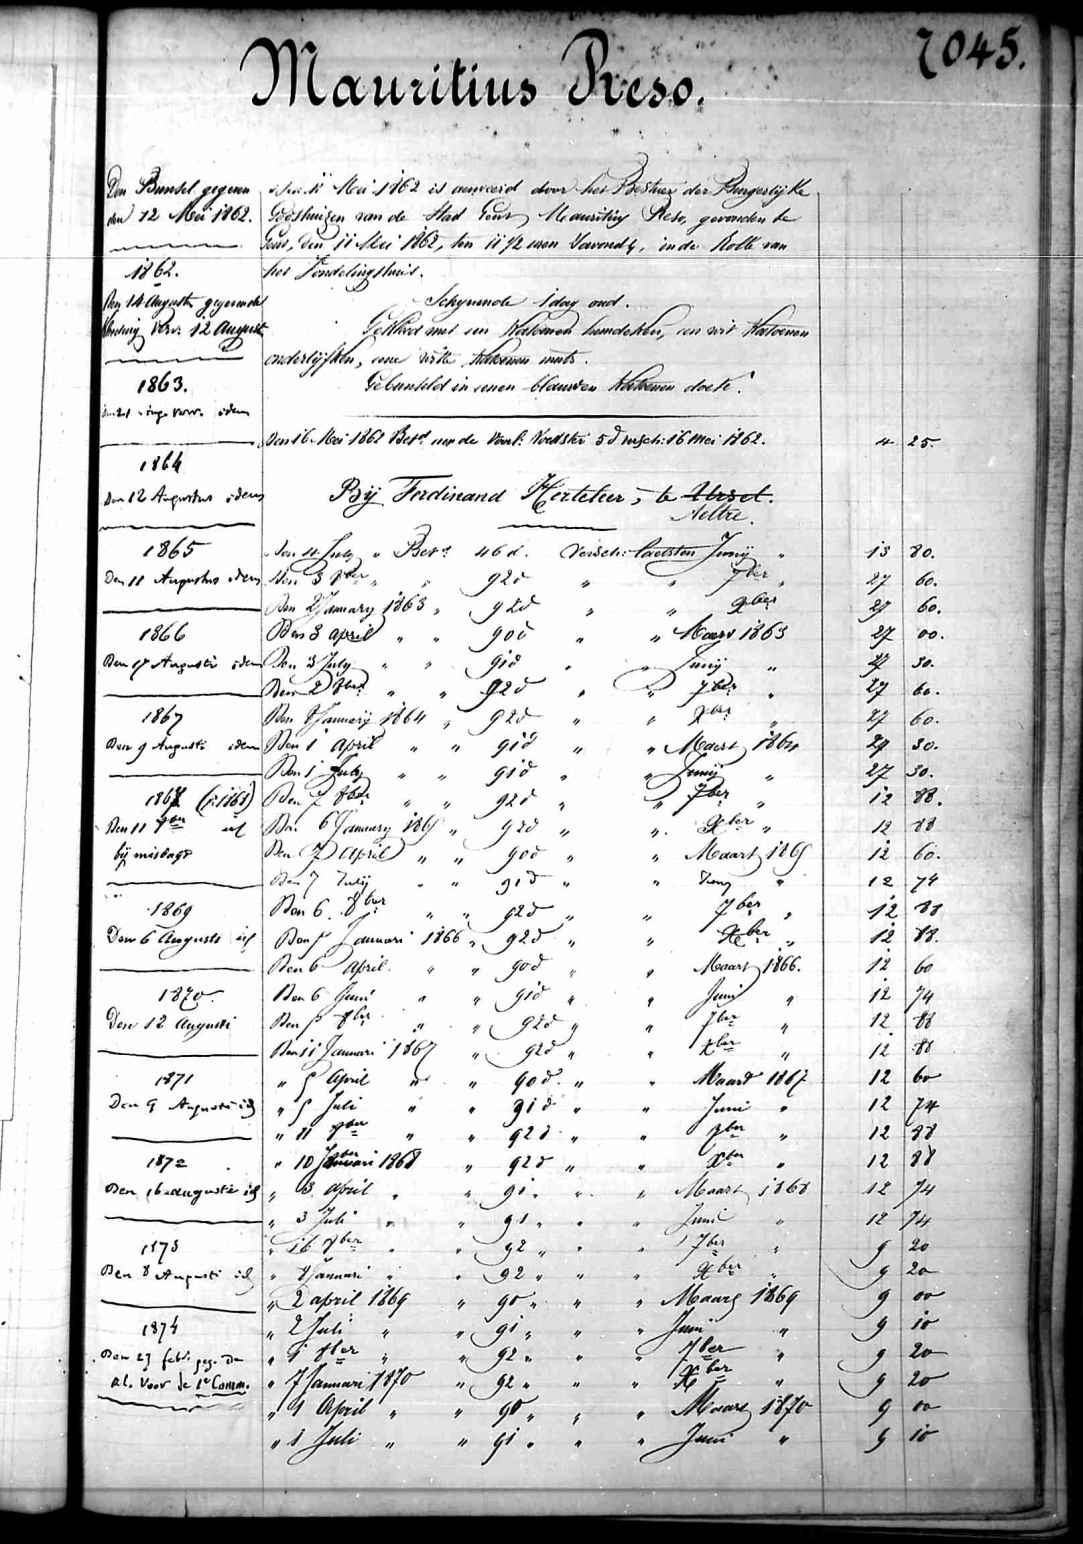 7045.
Mauritius Reso.
Den Bunsel gegeven
den 12 Mei 1862.
1862.
Den 14 Augusti gegeven het
verv. 12 August
1863.
idem
1864
Den 12 Augustus idem
1865
Den 11 Augustus idem
1866
Den 17 Augusti idem
1867
Den 9 Augusti idem
1868 (1868)
Den 11 7ber id
bij mislage
1869
Den 6 Augusti id
1870.
Den 12 Augusti
1871
Den 9 Augusti id
1872
Den 16 Augusti id
1873
Den 8 Augusti id
1874
Den 27 febr. geg. den
al. voor de 1e Comm.
Den 11 Mei 1862 is aenveerd door het Bestuer der Burgerlijke
Godshuizen van de Stad Gent, Mauritius Reso, gevonden te
Gent, den 11 Mei 1862, ten 11 1/2 uren 's avonds, in de Rolle van
het Vondelingshuis.
Schynende 1 dag oud.
Gekleed met een Katoenen hemdeken, een wit Katoenen
onderlijfken, eene witte Katoenen muts.
Gebunseld in eenen blauwen Katoenen doek.
Den 16 Mei 1862 Bet. aen de Voedster 5 d. versch: 16 Mei 1862. 4 25.
Bij Ferdinand Herteleer, te Ursel.
Aeltre.
Den 11 July " Bet. 46 d. Versch: laetsten Junij " 13 80.
Den 3 8ber " " 92 d " " 7ber " 27 60.
Den 2 January 1863 " 92 d " " Xber 27 60.
Den 3 april " " 90 d " Maert 1863 27 00.
Den 3 July " " 91 d " " Junij " 27 30.
Den 2 8ber " " 92 d " " 7ber " 27 60.
Den 8 Januarij 1864 " 92 d " " Xber " 27 60.
Den 1 april " " 91 d " " Maert 1864 27 30.
Den 1 July " " 91 d " " Junij " 27 30.
Den 7 8ber " " 92 d " " 7ber " 12 88.
Den 6 January 1865 " 92 d " " Xber " 12 88
Den 7 April " " 90 d " " Maart 1865 12 60.
Den 7 July " " 91 d " " Juny " 12 74
Den 6 8ber " " 92 d " " 7ber " 12 88
Den 5 Januari 1866 " 92 d " " Xber " 12 88.
Den 6 April " " 90 d " Maart 1866. 12 60
Den 6 Juni " " 91 d " " Juni " 12 74
Den 5 8ber " " 92 d " " 7ber " 12 88
Den 11 Januari 1867 " 92 d " " Xber " 12 88
" 5 April " " 90 d " " Maard 1867 12 60
" 5 Juli " " 91 d " " Juni " 12 74
" 11 8ber " " 92 d " " 7ber " 12 88
" 10 Januari 1868 " 92 d " " Xber " 12 88
" 3 april " " 91 " " " Maart 1868 12 74
" 3 Juli " " 91 " " " Juni " 12 74
" 16 8ber " " 92 " " " 7ber " 9 20
" 8 Januari " " 92 " " " Xber " 9 20
" 2 april 1869 " 90 " " " Maart 1869 9 00
" 2 Juli " " 91 " " " Juni " 9 10
" 1 8ber " " 92 " " " 7ber " 9 20
" 7 Januari 1870 " 92 " " " Xber " 9 20
" 1 April " " 90 " " " Maart 1870 9 00
" 1 Juli " " 91 " " " Juni " 9 10